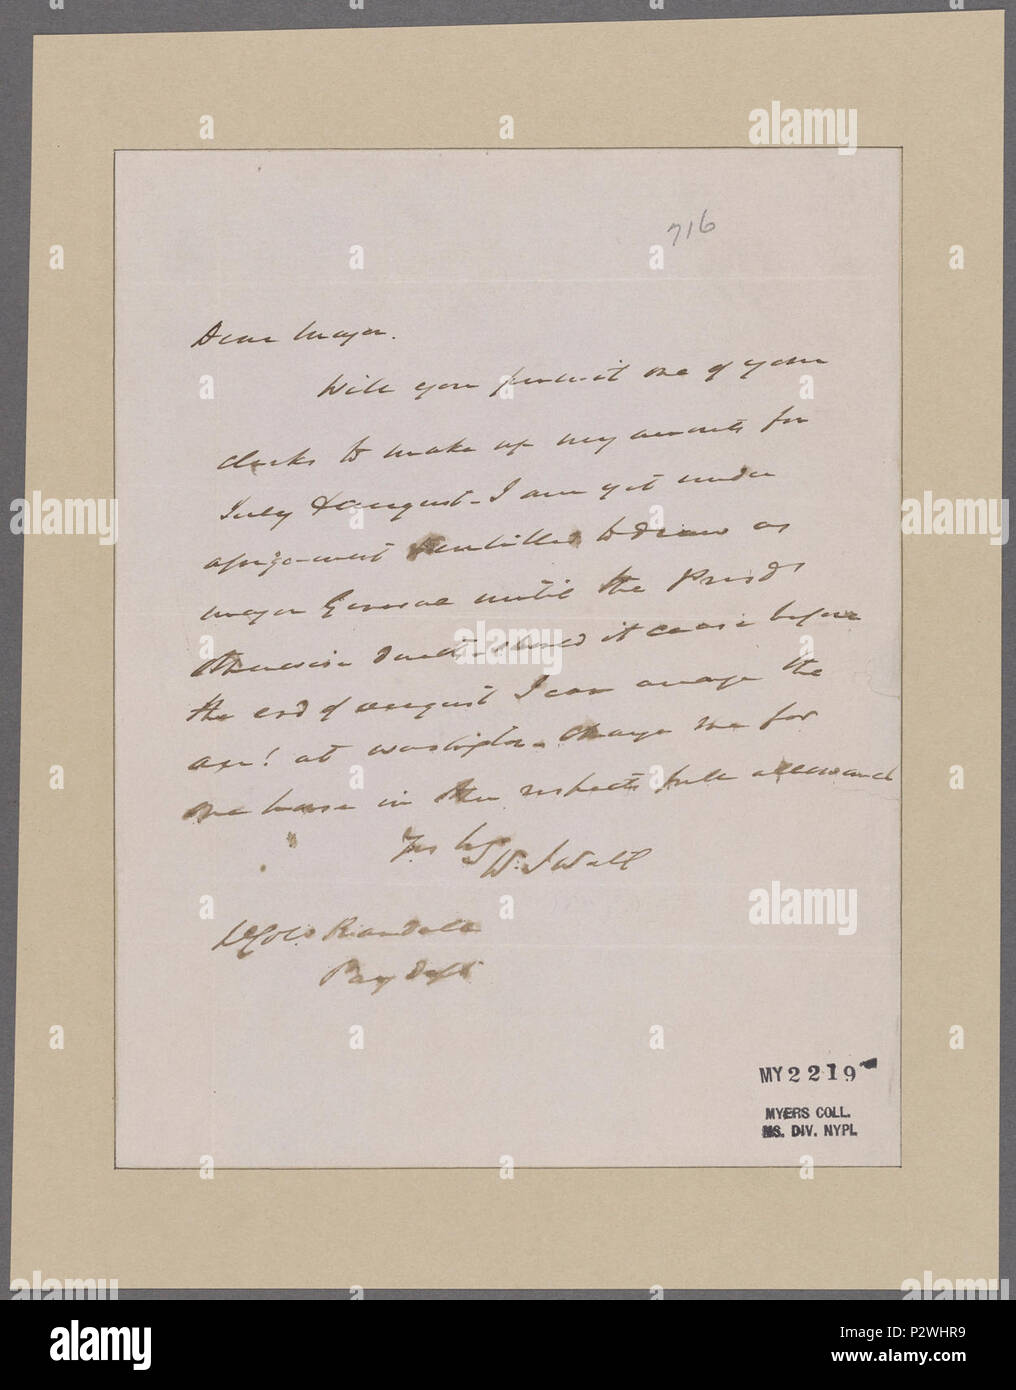 716
Dear Major.
Will you permit one of your
clerks to make up my accounts for
July & August - I am yet under
assignment & entitled to draw as
Major General until the Presdt
otherwise directs - should it cease before
the end of August I can arrange the
at Washington - Charge me for
one horse in the full allowance
W. S. Wall
Randall
Pay Dept
MY2219
MYERS COLL.
MS. DIV. NYPL
a alamy stock photo
alamy
Image ID: P2WHR9
www.alamy.com